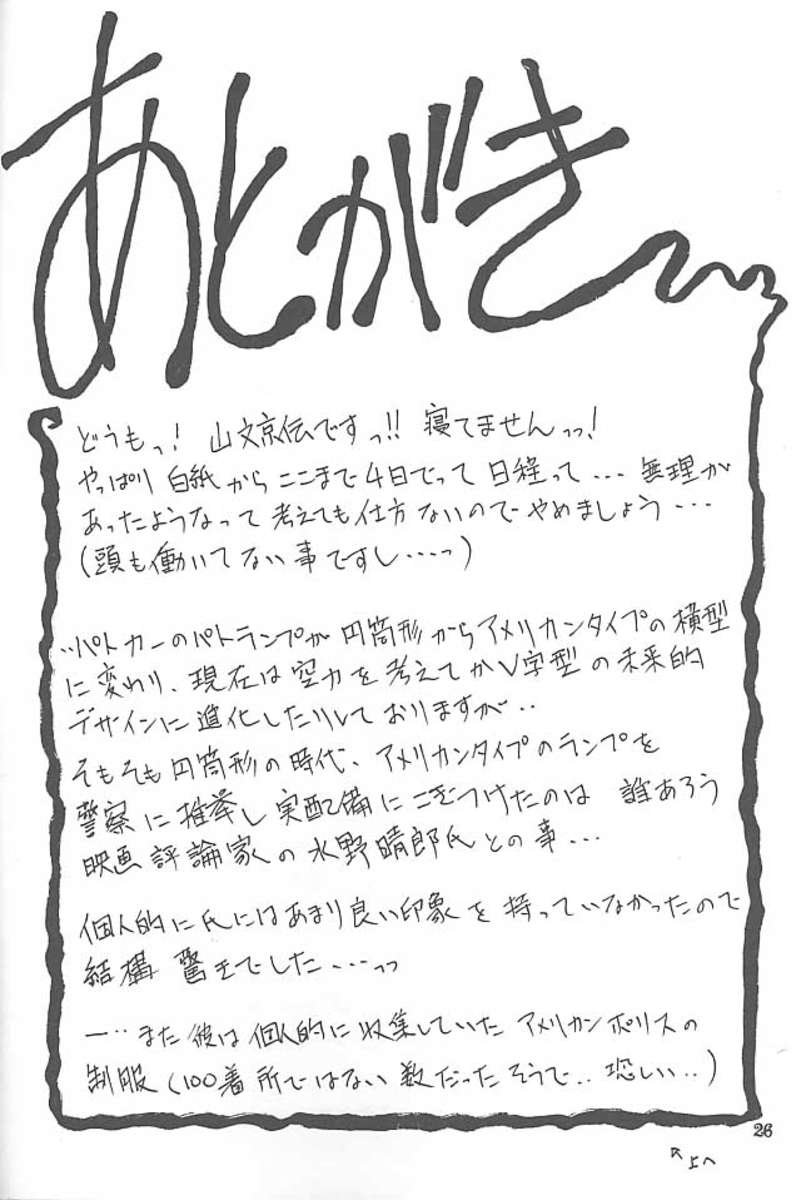 あとがき
どうもっ! 山文京伝ですっ!! 寝てませんっっ!
やっぱり 白紙から ここまで 4日でって 日程って… 無理が
あったようなって 考えても仕方ないので やめましょう…
(頭も働いてない事ですし……っ)
‥パトカーのパトランプが 円筒形からアメリカンタイプの横型
に変わり、現在は空力を考えてかV字型の未来的
デザインに進化したりしておりますが‥
そもそも円筒形の時代、アメリカンタイプのランプを
警察に推挙し実配備にこぎつけたのは 誰あろう
映画評論家の水野晴郎氏との事…
個人的に氏にはあまり良い印象を持っていなかったので
結構 驚きでした…っっ
一‥また彼は個人的に収集していたアメリカンポリスの
制服(100着所ではない数だったそうで‥恐しい‥)
26
上へ